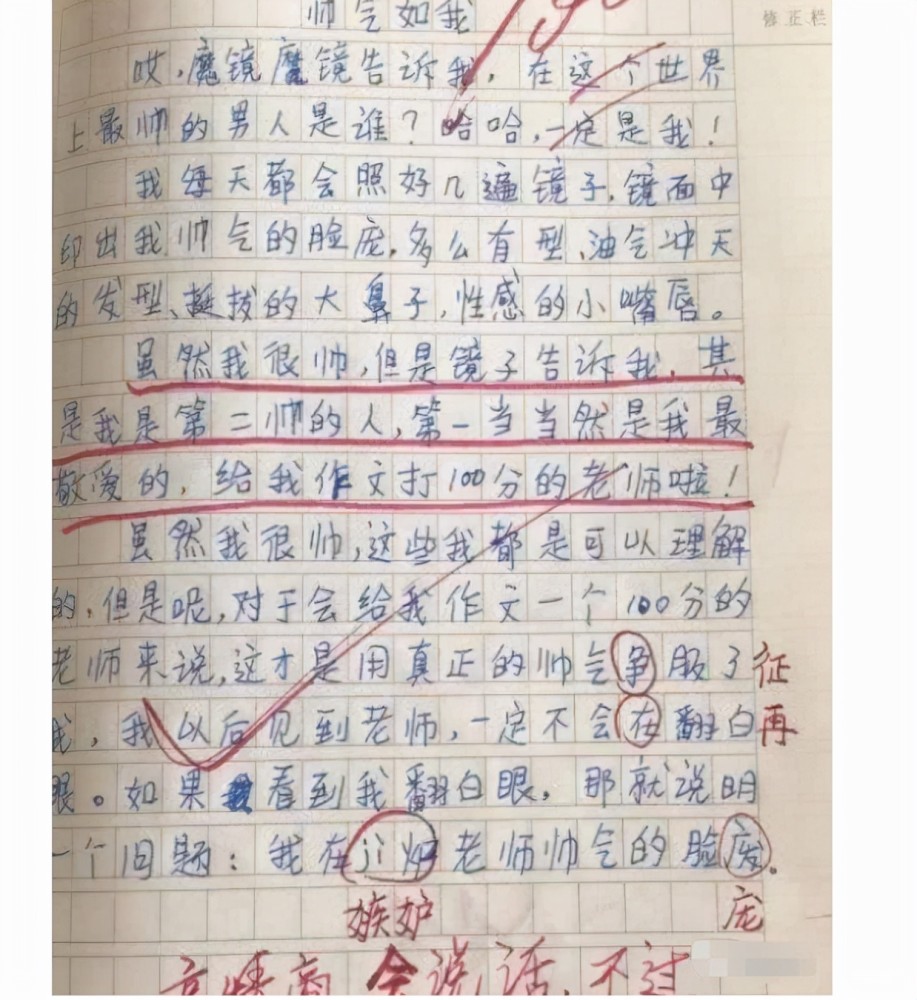 修正栏
帅气如我
哎,魔镜魔镜告诉我,在这个世界
上最帅的男人是谁?哈哈,一定是我!
我每天都会照好几遍镜子,镜面中
印出我帅气的脸庞,多么有型、油气冲天
的发型、挺拔的大鼻子,性感的小嘴唇。
虽然我很帅,但是镜子告诉我,其
是我是第二帅的人,第一当当然是我最
敬爱的,给我作文打100分的老师啦!
虽然我很帅,这些我都是可以理解
的,但是呢,对于会给我作文一个100分的
老师来说,这才是用真正的帅气争服了 征
我,我以后见到老师,一定不会在翻白 再
眼。如果看到我翻白眼,那就说明
一个问题:我在ji妒老师帅气的脸庞。
嫉妒 庞
高情商 会说话,不过